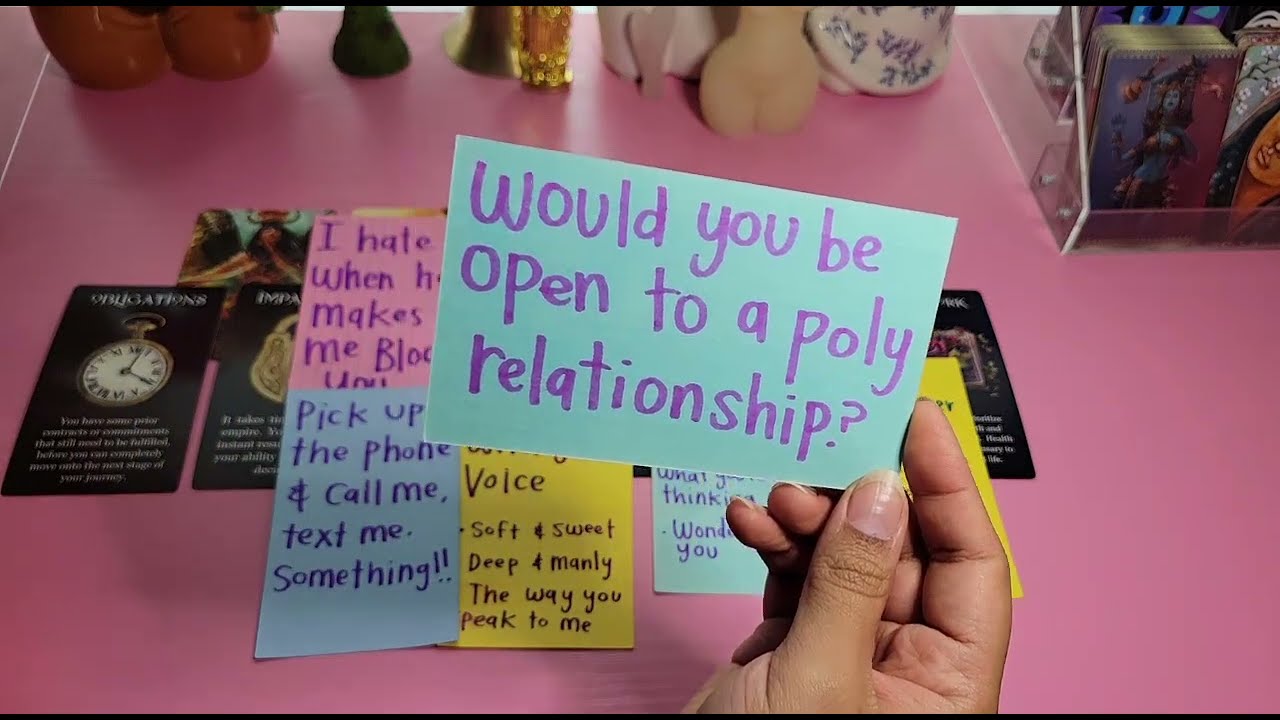 Would you be
open to a poly
relationship?
OBLIGATIONS
You have some prior
contracts or commitments
that still need to be fulfilled,
before you can completely
move onto the next stage of
your journey.
It takes
empire. You
instant
your ability
I hate
when
makes
me
you
Pick up
the phone
& call me,
text me.
Something!!
Voice
· Soft & sweet
Deep & manly
The way you
speak to me
thinking
you
Health
life.